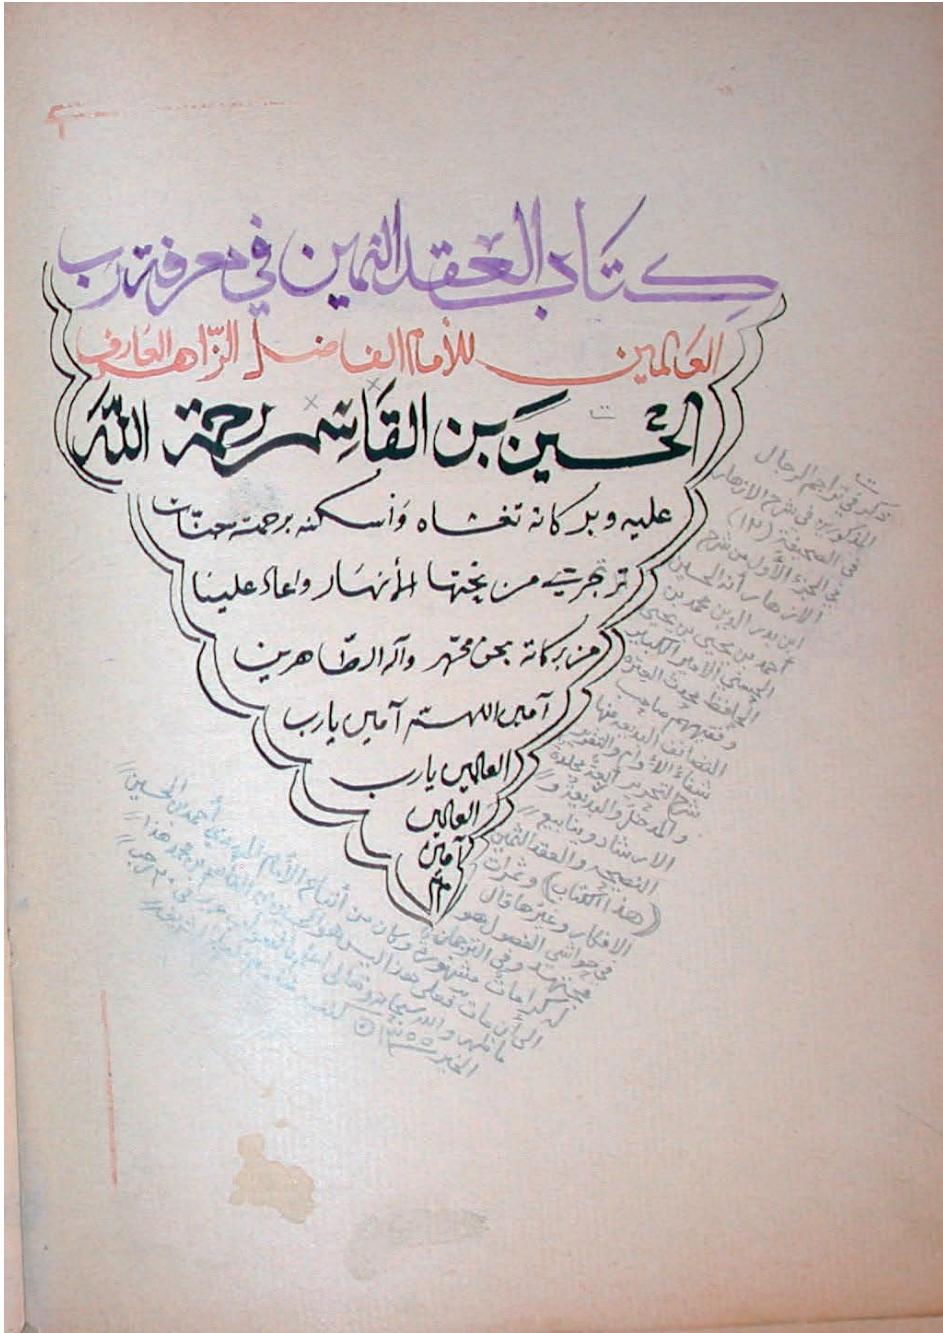 كتاب العقد الثمين في معرفة رب
العالمين للأمام الفاضل الزاهد العارف
الحسين بن القاسم رحمة الله
عليه وبركاته تغشاه وأسكنه برحمته جنات
تجري من تحتها الأنهار واعاد علينا
من بركاته بحق محمد وآله الطاهرين
آمين اللهم آمين يارب
العالمين يارب
العالمين
آمين
ت
ذكر في تراجم الرجال
المذكورين في شرح الازهار
في الصحيفة (١٢)
في الجزء الأول من شرح
الازهار أنه الحسين
ابن بدر الدين محمد بن
أحمد بن يحيى بن يحيى
الحسني الأمير الكبير
الحافظ محدث العترة
وفقيههم صاحب
التصانف البديعة منها
شفاء الأوام والتقرير
شرح التحرير أربعة مجلدة
والمدخل والذريعة و
الارشاد وينابيع
النصيحة والعقد الثمين
(هذا الكتاب) وثمرات
الافكار وغيرها قال
في حواشي الفصول هو
مجتهد وفي الترجمان
له كرامات مشهورة وكان من أتباع الأمام المهدي أحمد بن الحسين
الى أن مات فعلى هذا ليس هو الحسين بن القاسم بن محمد هذا
ما ظهر والله سبحانه وتعالى أعلم
الخير